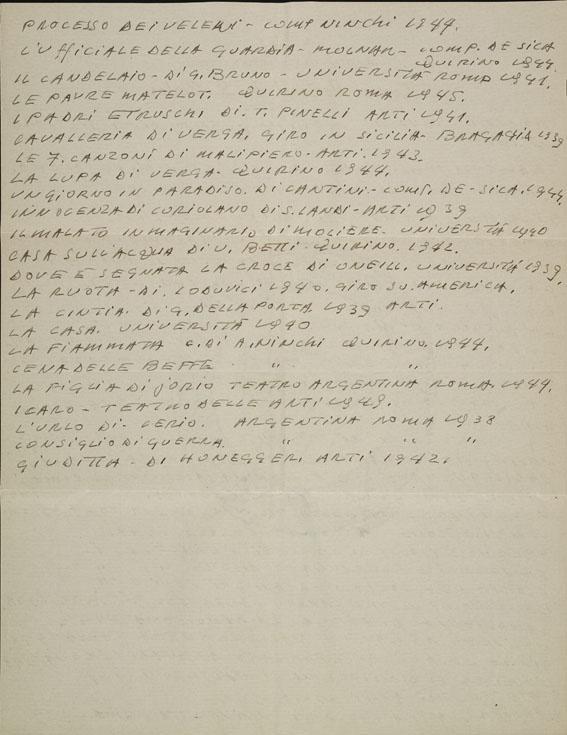 PROCESSO DEI VELENI - COMP NINCHI 1944.
L'UFFICIALE DELLA GUARDIA - MOLNAR - COMP. DE SICA
QUIRINO 1944.
IL CANDELAIO - DI G. BRUNO - UNIVERSITÀ ROMA 1941.
LE PAVRE MATELOT. QUIRINO ROMA 1945.
I PADRI ETRUSCHI DI. T. PINELLI ARTI 1941.
CAVALLERIA DI VERGA, GIRO IN SICILIA - BRAGAGLIA 1939
LE 7. CANZONI DI MALIPIERO - ARTI. 1943.
LA LUPA DI VERGA - QUIRINO 1944.
UN GIORNO IN PARADISO. DI CANTINI - COMP. DE - SICA. 1944.
INNOCENZA DI CORIOLANO DI S. LANDI - ARTI 1939
IL MALATO INMAGINARIO DI MOLIERE. UNIVERSITÀ 1940
CASA SULL'ACQUA DI U. BETTI - QUIRINO. 1942.
DOVE È SEGNATA LA CROCE DI ONEILL. UNIVERSITÀ 1939.
LA RUOTA - DI. LODUVICI 1940. GIRO SU. AMERICA.
LA CINTIA. DI G. DELLA PORTA. 1939 ARTI.
LA CASA. UNIVERSITÀ 1940
LA FIAMMATA C. DI A. NINCHI QUIRINO. 1944.
CENA DELLE BEFFE " "
LA FIGLIA DI JORIO TEATRO ARGENTINA ROMA. 1949.
ICARO - TEATRO DELLE ARTI 1949.
L'URLO DI - CERIO. ARGENTINA ROMA 1938
CONSIGLIO DI GUERRA. " " "
GIUDITTA - DI HONEGGER. ARTI 1942.